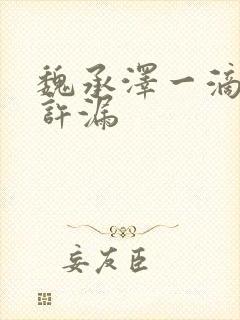 魏承澤一滴
許漏
妄友臣